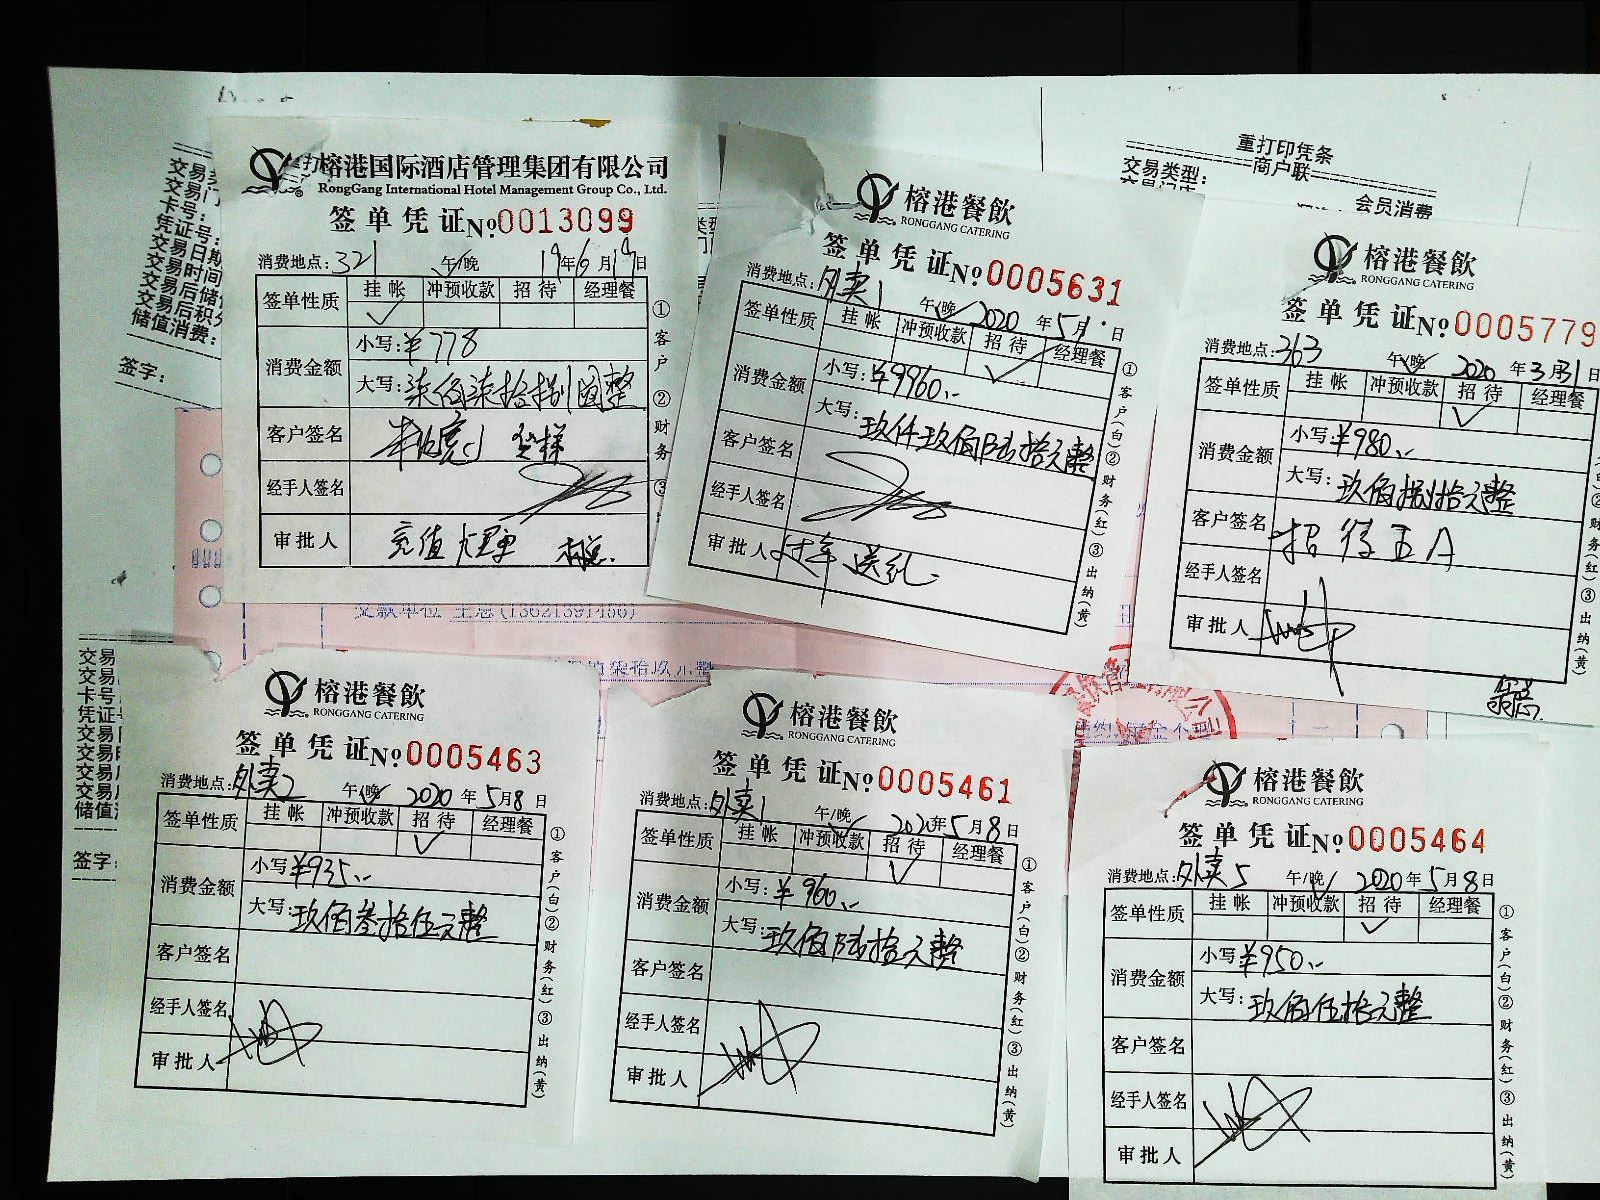 重打印凭条
商户联
交易类型:
会员消费
签字:
榕港国际酒店管理集团有限公司
RongGang International Hotel Management Group Co., Ltd.
签单凭证No.0013099
消费地点:321 午/晚 19年6月19日
签单性质 挂帐 冲预收款 招待 经理餐
✓
消费金额
小写:¥778
大写:柒佰柒拾捌圆整
客户签名
经手人签名
审批人 充值
①客户②财务③
榕港餐飲
RONGGANG CATERING
签单凭证No.0005631
消费地点:外卖1 午/晚 2020年5月1日
签单性质 挂帐 冲预收款 招待 经理餐
✓
消费金额
小写:¥9960.-
大写:玖仟玖佰陆拾元整
客户签名
经手人签名
审批人 过年送礼
①客户(白)②财务(红)③出纳(黄)
榕港餐飲
RONGGANG CATERING
签单凭证No.0005779
消费地点:363 午/晚 2020年3月31日
签单性质 挂帐 冲预收款 招待 经理餐
✓
消费金额
小写:¥980.-
大写:玖佰捌拾元整
客户签名 招待
经手人签名
审批人
财务(红)③出纳(黄)
交款单位 王总(13621391466)
榕港餐飲
RONGGANG CATERING
签单凭证No.0005463
消费地点:外卖2 午/晚 2020年5月8日
签单性质 挂帐 冲预收款 招待 经理餐
✓
消费金额
小写:¥935.-
大写:玖佰叁拾伍元整
客户签名
经手人签名
审批人
①客户(白)②财务(红)③出纳(黄)
签字:
榕港餐飲
RONGGANG CATERING
签单凭证No.0005461
消费地点:外卖1 午/晚 2020年5月8日
签单性质 挂帐 冲预收款 招待 经理餐
✓
消费金额
小写:¥960.-
大写:玖佰陆拾元整
客户签名
经手人签名
审批人
①客户(白)②财务(红)③出纳(黄)
榕港餐飲
RONGGANG CATERING
签单凭证No.0005464
消费地点:外卖5 午/晚 2020年5月8日
签单性质 挂帐 冲预收款 招待 经理餐
✓
消费金额
小写:¥950.-
大写:玖佰伍拾元整
客户签名
经手人签名
审批人
①客户(白)②财务(红)③出纳(黄)